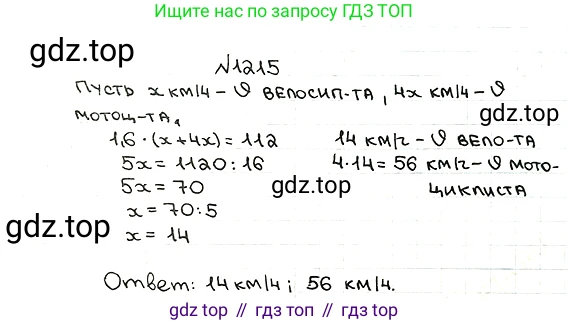 Ищите нас по запросу ГДЗ ТОП
gdz.top
№1215
Пусть x км/ч – V велосип-та, 4x км/ч – V
мотоц-та.
gdz.top
1,6 · (x + 4x) = 112
14 км/ч – V вело-та
5x = 1120 : 16
4·14 = 56 км/ч – V мото-
циклиста
5x = 70
gdz.top
x = 70 : 5
gdz.top
x = 14
Ответ: 14 км/ч; 56 км/ч.
gdz.top // гдз топ // гдз.top